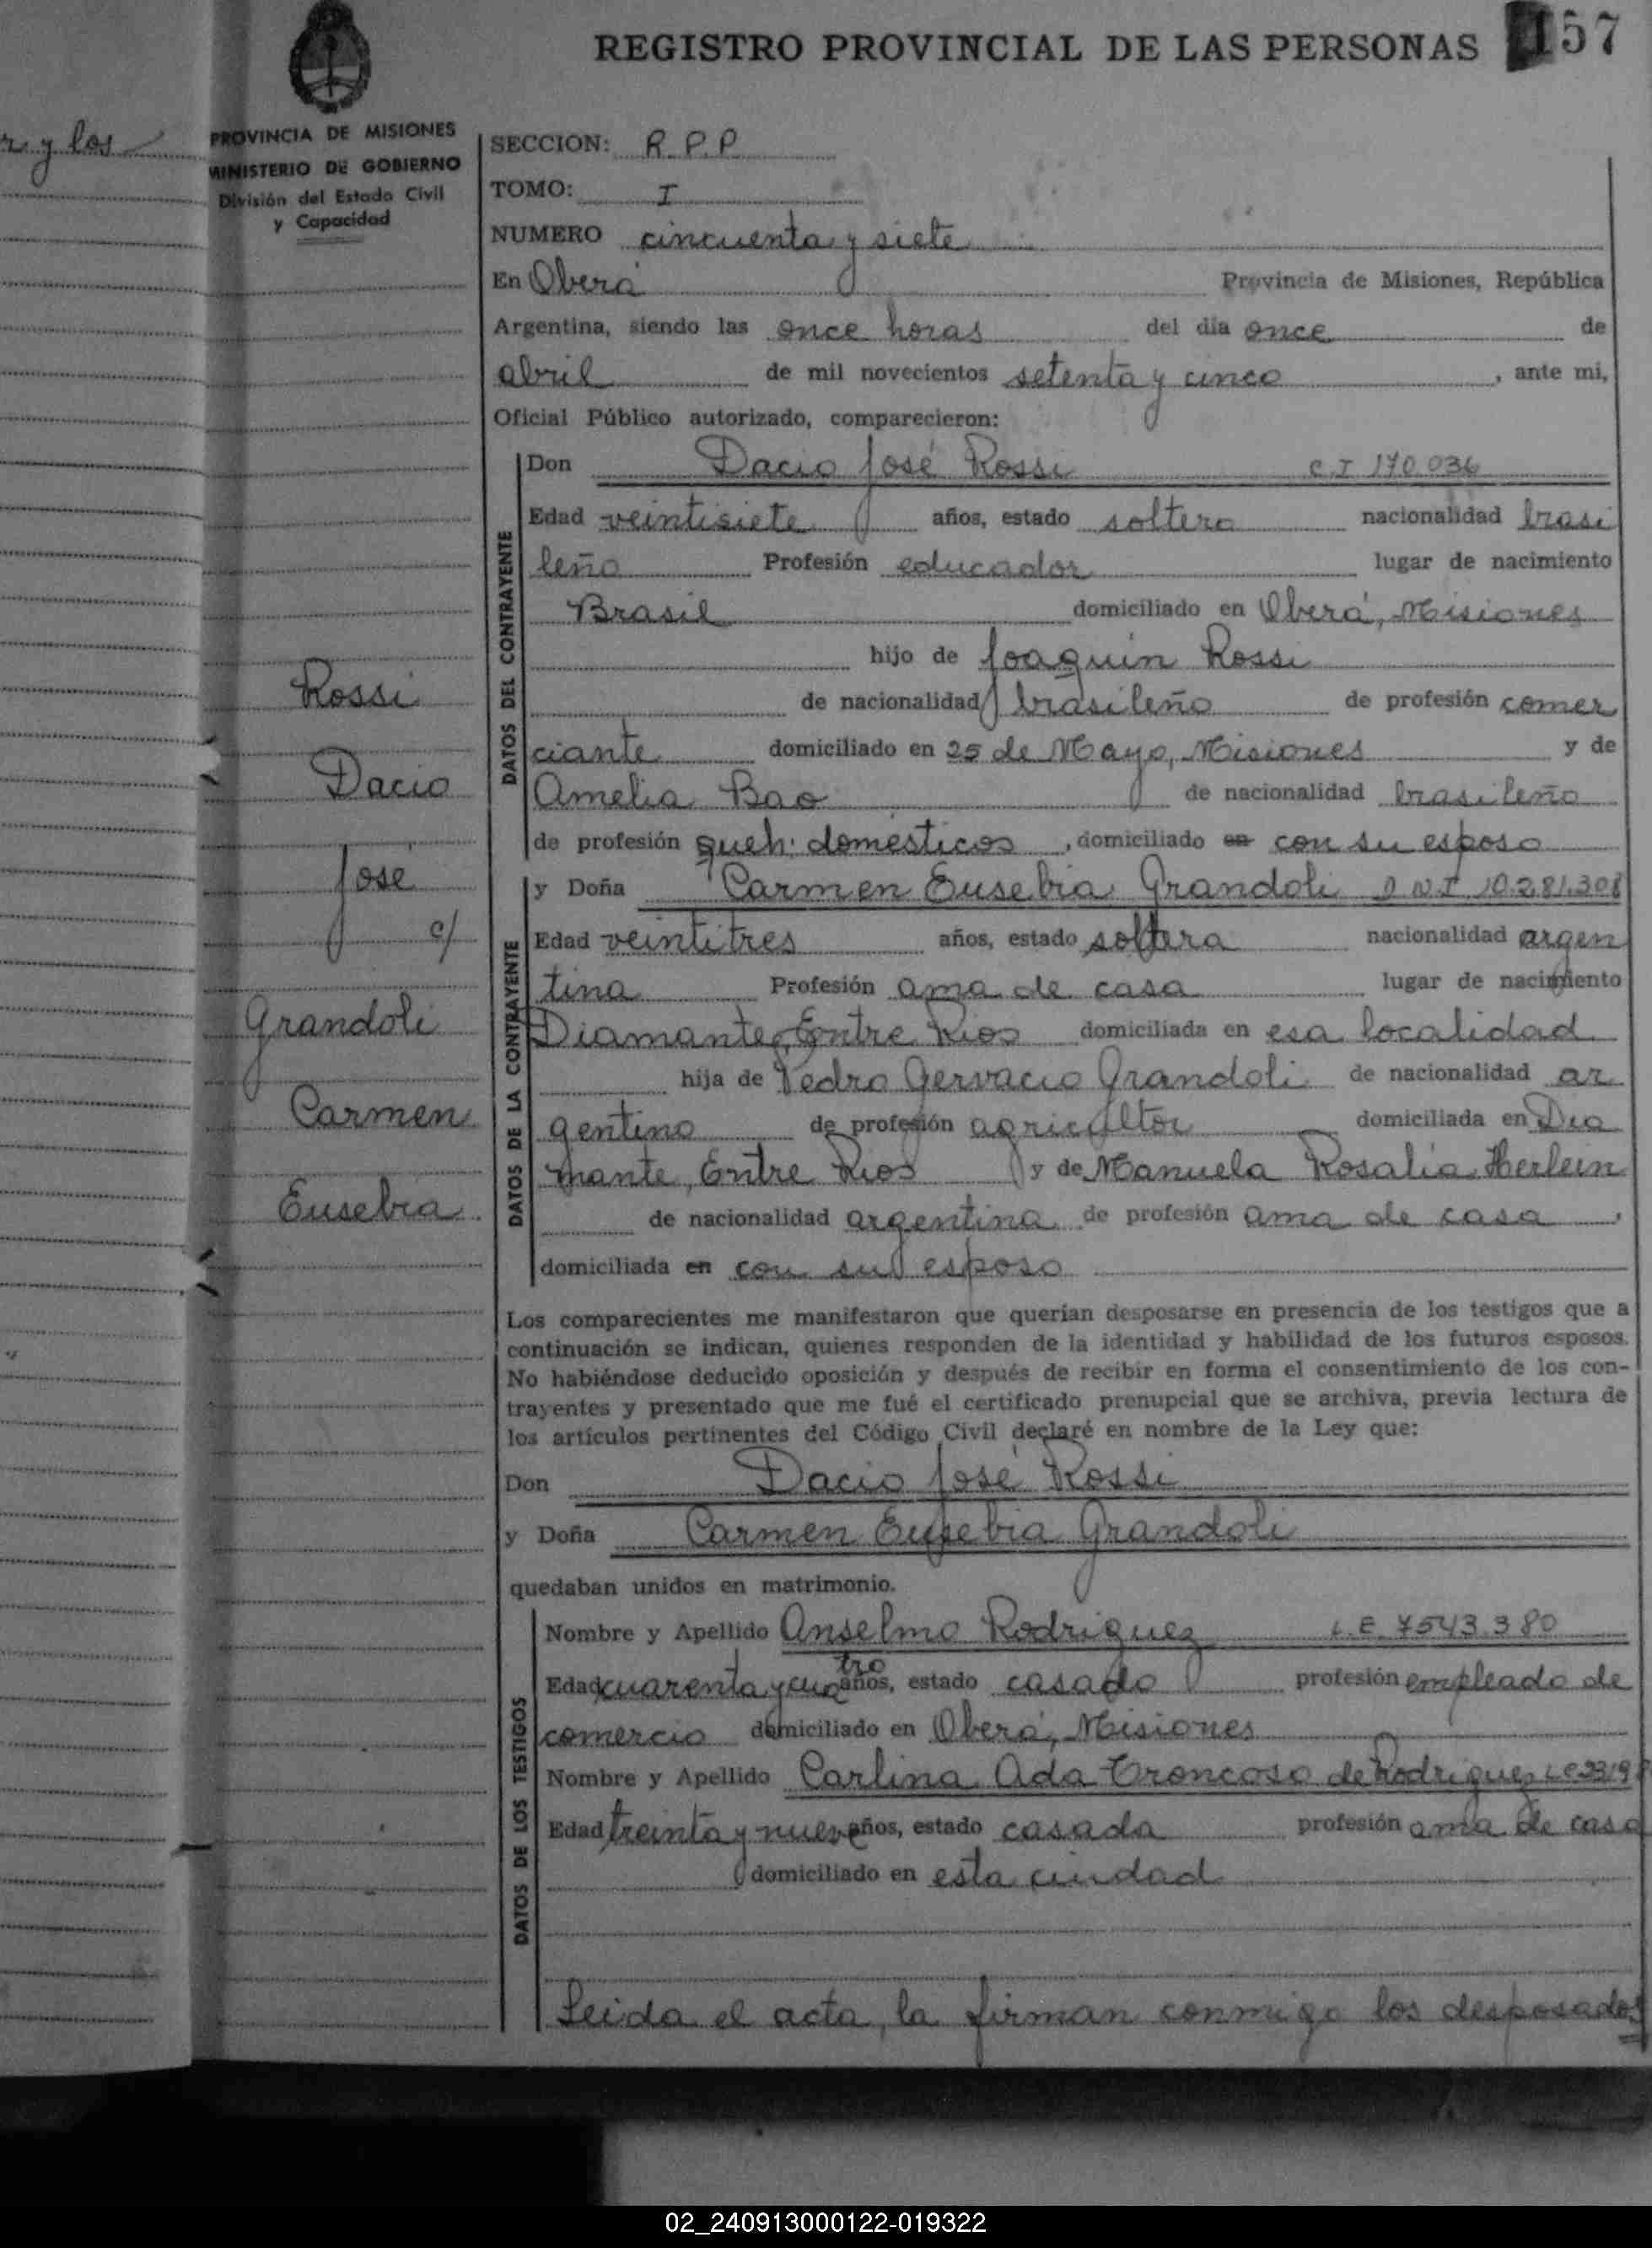 REGISTRO PROVINCIAL DE LAS PERSONAS 157
y los
PROVINCIA DE MISIONES
MINISTERIO DE GOBIERNO
División del Estado Civil
y Capacidad
SECCION: R.P.P
TOMO: I
NUMERO cincuenta y siete
En Oberá Provincia de Misiones, República
Argentina, siendo las once horas del día once de
abril de mil novecientos setenta y cinco, ante mi,
Oficial Público autorizado, comparecieron:
DATOS DEL CONTRAYENTE
Don Dacio José Rossi C.I 170.036
Edad veintisiete años, estado soltero nacionalidad brasi
leño Profesión educador lugar de nacimiento
Brasil domiciliado en Oberá, Misiones
hijo de Joaquin Rossi
de nacionalidad brasileño de profesión comer
ciante domiciliado en 25 de Mayo, Misiones y de
Amelia Bao de nacionalidad brasileño
de profesión queh. domésticos, domiciliado en con su esposo
DATOS DE LA CONTRAYENTE
y Doña Carmen Eusebia Grandoli D.N.I 10.281.308
Edad veintitres años, estado soltera nacionalidad argen
tina Profesión ama de casa lugar de nacimiento
Diamante, Entre Rios domiciliada en esa localidad
hija de Pedro Gervacio Grandoli de nacionalidad ar
gentino de profesión agricultor domiciliada en Dia
mante, Entre Rios y de Manuela Rosalía Herlein
de nacionalidad argentina de profesión ama de casa,
domiciliada en con su esposo
Rossi
Dacio
José
c/
Grandoli
Carmen
Eusebia
Los comparecientes me manifestaron que querían desposarse en presencia de los testigos que a
continuación se indican, quienes responden de la identidad y habilidad de los futuros esposos.
No habiéndose deducido oposición y después de recibir en forma el consentimiento de los con-
trayentes y presentado que me fué el certificado prenupcial que se archiva, previa lectura de
los artículos pertinentes del Código Civil declaré en nombre de la Ley que:
Don Dacio José Rossi
y Doña Carmen Eusebia Grandoli
quedaban unidos en matrimonio.
DATOS DE LOS TESTIGOS
Nombre y Apellido Anselmo Rodriguez L.E. 7543.380
Edad cuarenta y cuatro años, estado casado profesión empleado de
comercio domiciliado en Oberá, Misiones
Nombre y Apellido Carlina Ada Troncoso de Rodriguez
Edad treinta y nueve años, estado casada profesión ama de casa
domiciliado en esta ciudad
Leida el acta, la firman conmigo los desposados
02_240913000122-019322